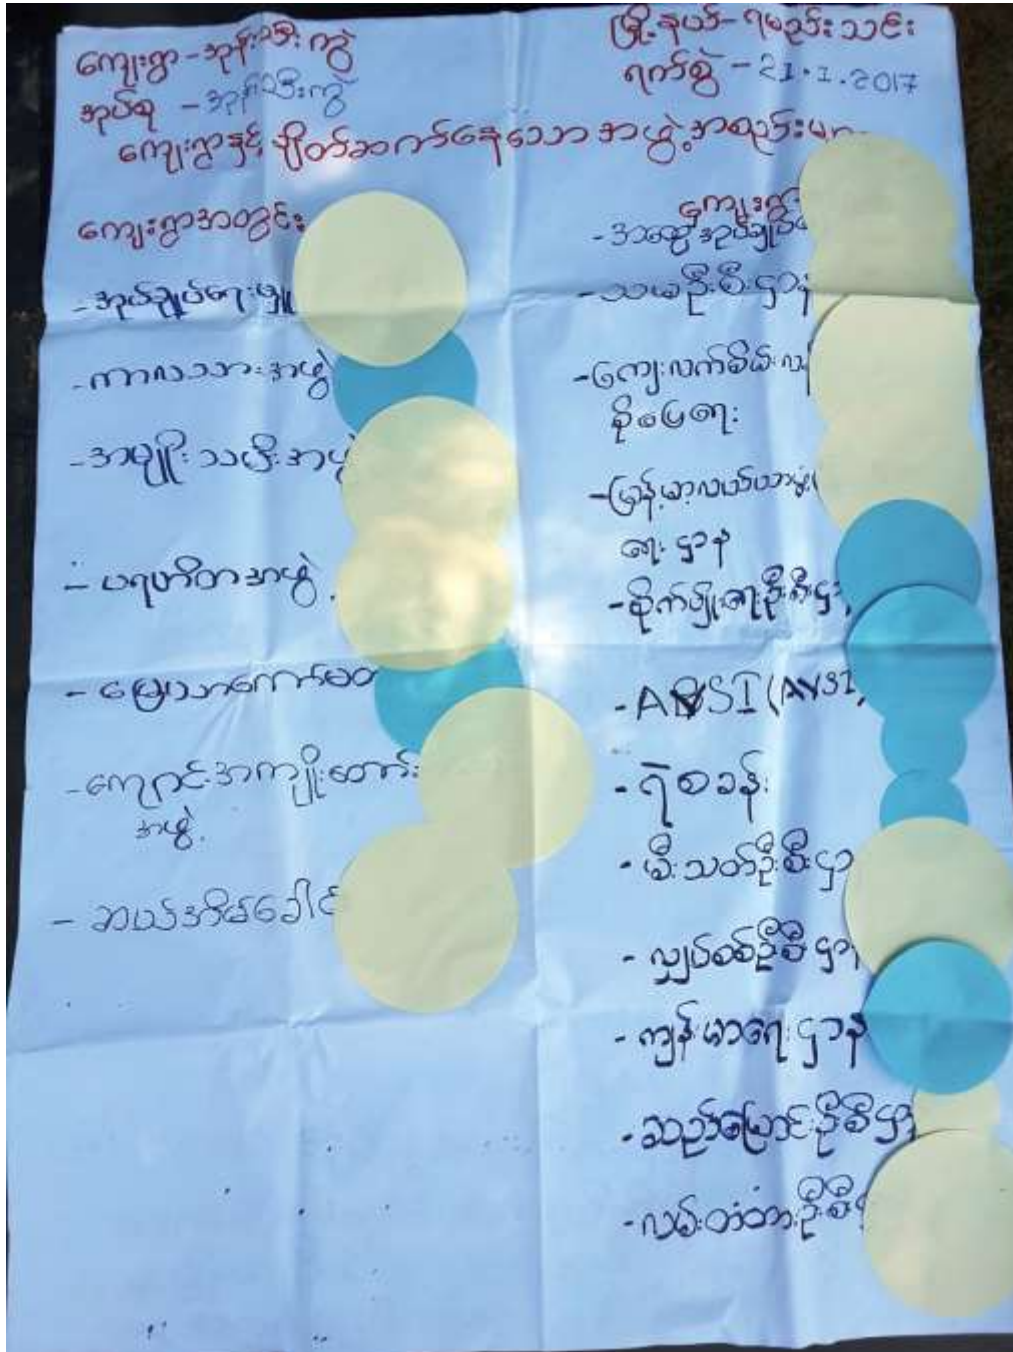 ကျေးရွာ - အုန်းသီးကွဲ
မြို့နယ် - ရမည်းသင်း
အုပ်စု - အုန်းသီးကွဲ
ရက်စွဲ - 21.1.2017
ကျေးရွာနှင့် ချိတ်ဆက်နေသော အဖွဲ့အစည်းများ
ကျေးရွာအတွင်း
- အုပ်ချုပ်ရေးမှူး
- ကာလသားအဖွဲ့
- အမျိုးသမီးအဖွဲ့
- ပရဟိတအဖွဲ့
- မြေယာကော်မတ
- ကျောင်းအကျိုးတော်
အဖွဲ့
- ဆယ်အိမ်ခေါင်
ကျေးရွာ
- အထွေအုပ်ချုပ်ရေ
- သမဦးစီးဌာန
- ကျေးလက်စိမ်းလန်
စိုပြေရေး
- မြန်မာ့လယ်ယာ
ရေးဌာန
- စိုက်ပျိုးရေးဦးစီးဌာ
- AVSI (AVSI)
- ရဲစခန်း
- မီးသတ်ဦးစီးဌာ
- လျှပ်စစ်ဦးစီးဌာ
- ကျန်းမာရေးဌာန
- ဆည်မြောင်းဦးစီးဌာ
- လမ်းတံတားဦးစီး